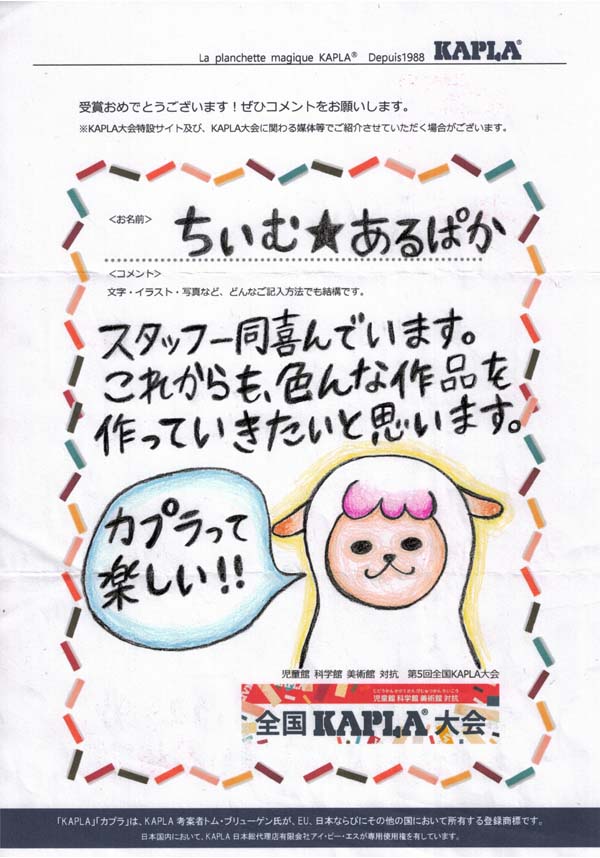 La planchette magique KAPLA® Depuis1988 KAPLA®
受賞おめでとうございます！ぜひコメントをお願いします。
※KAPLA大会特設サイト及び、KAPLA大会に関わる媒体等でご紹介させていただく場合がございます。
<お名前>
ちいむ★あるぱか
<コメント>
文字・イラスト・写真など、どんなご記入方法でも結構です。
スタッフ一同喜んでいます。
これからも、色んな作品を
作っていきたいと思います。
カプラって
楽しい!!
児童館 科学館 美術館 対抗 第5回全国KAPLA大会
じどうかん かがくかん びじゅつかん たいこう
児童館 科学館 美術館 対抗
全国 KAPLA® 大会
「KAPLA」「カプラ」は、KAPLA 考案者トム・ブリューゲン氏が、EU、日本ならびにその他の国において所有する登録商標です。
日本国内において、KAPLA 日本総代理店有限会社アイ・ピー・エスが専用使用権を有しています。